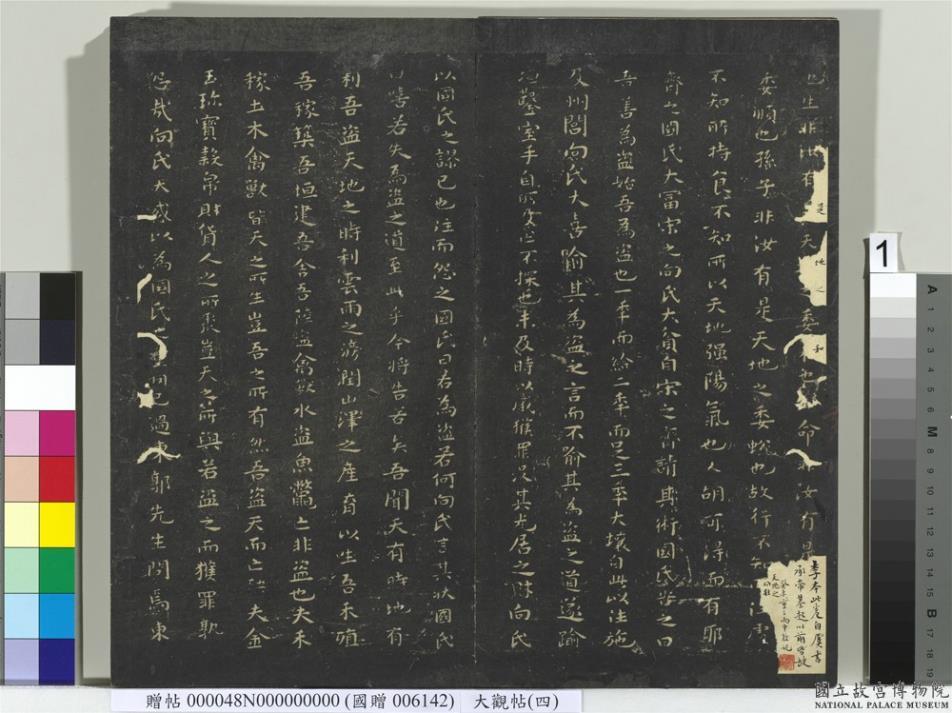 也生非汝有是天地之委和也命非汝有是
委順也孫子非汝有是天地之委蛻也故行不知
不知所持食不知所以天地强陽氣也人胡可得而有耶
齊之國氏大富宋之向氏大貧自宋之齊請其術國氏告之曰
吾善為盜始吾為盜也一年而給二年而足三年大壤自此以往施
及州閭向氏大喜喻其為盜之言而不喻其為盜之道遂踰
垣鑿室手目所及亡不探也未及時以臧獲罪没其先居之財向氏
以國氏之謬己也往而怨之國氏曰若為盜若何向氏言其狀國氏
曰嘻若失為盜之道至此乎今將告若矣吾聞天有時地有
利吾盜天地之時利雲雨之滂潤山澤之產育以生吾禾殖
吾稼築吾垣建吾舍吾陸盜禽獸水盜魚鼈亡非盜也夫禾
稼土木禽獸皆天之所生豈吾之所有然吾盜天而亡殃夫金
玉珍寶穀帛財貨人之所聚豈天之所與若盜之而獲罪孰
怨哉向氏大惑以為國氏重罔己過東郭先生問焉東
1
A 1 2 3 4 5 6 M 8 9 10 11 12 13 14 15 B 17 18 19
贈帖 000048N000000000 (國贈 006142) 大觀帖(四)
國立故宮博物院
NATIONAL PALACE MUSEUM